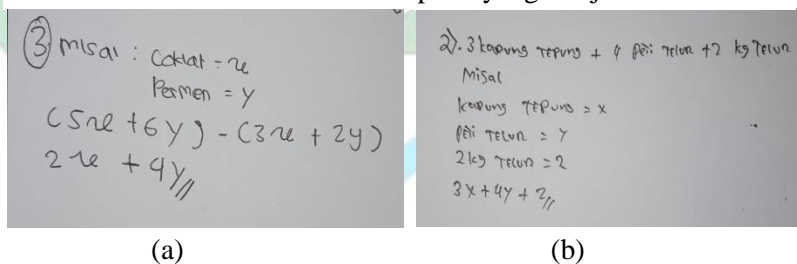 ③ misal : Coklat = x
Permen = y
(5x + 6y) - (3x + 2y)
2x + 4y //
2). 3 karung tepung + 4 peti telur + 2 kg Telur
Misal
karung tepung = x
peti Telur = y
2 kg Telur = 2
3x + 4y + 2 //
(a)
(b)